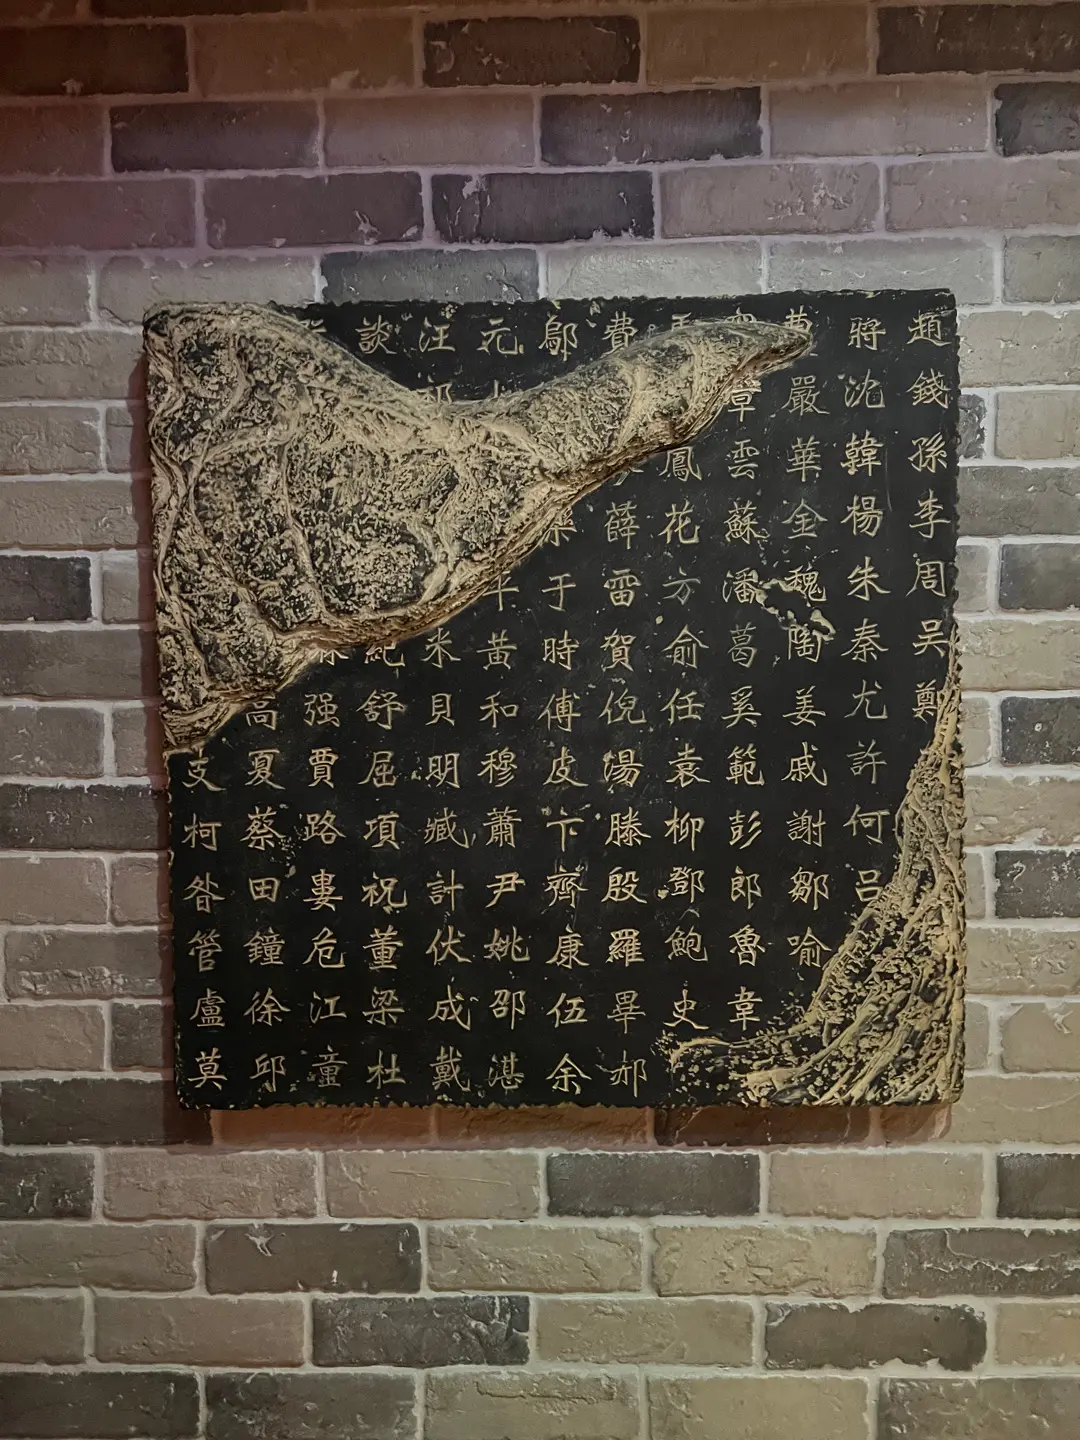 趙錢孫李周吳鄭
將沈韓楊朱秦尤許何呂
嚴華金魏陶姜戚謝鄒喻
章雲蘇潘葛奚範彭郎魯韋
鳳花方俞任袁柳鄧鮑史
費薛雷賀倪湯滕殷羅畢郝
鄔于時傅皮卞齊康伍余
元平黃和穆蕭尹姚邵湛
汪祁米貝明臧計伏成戴
談紀舒屈項祝董梁杜
强賈路婁危江童
高夏蔡田鐘徐邱
支柯昝管盧莫